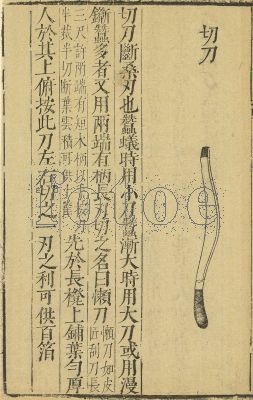 切刀
切刀斷桑刃也蠶蟻時用小刀蠶漸大時用大刀或用漫
鍘蠶多者又用兩端有柄長刃切之名曰懶刀
懶刀如皮
匠刮刀長
三尺許兩端有短木柄以手按刀
半裁半切斷葉雲積可供十
先於長櫈上鋪葉勻厚
人於其上俯按此刀左右切之一刃之利可供百箔